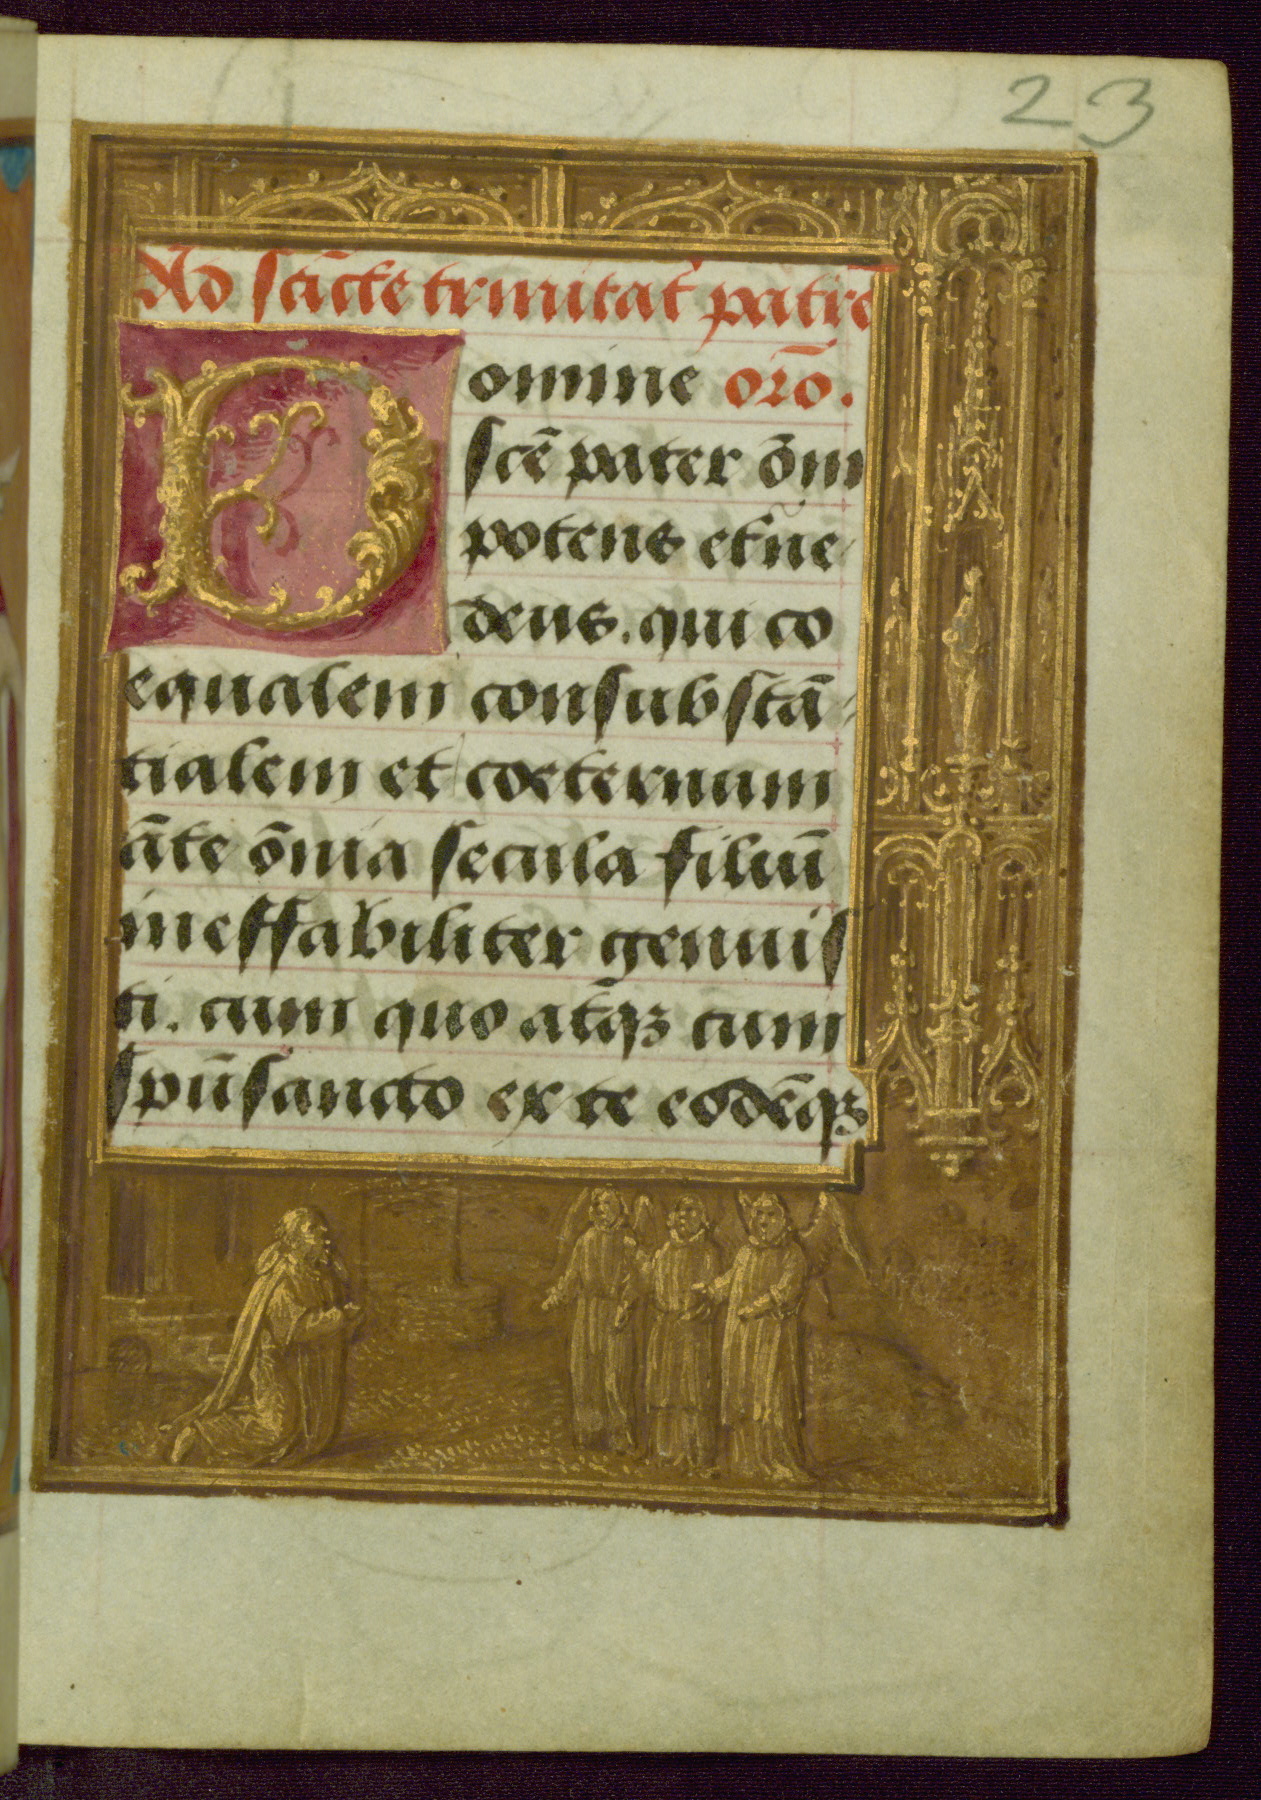 23
Ad sctācte trinitat' patrē
Domine orō.
scē pater ōm
potens etn̄e
deus. qui co
equalem consubstā
tialem et coeternum
āte ōnia secula filiū
ineffabiliter genuis
ti. cum quo atq̄ꝫ cum
spūsancto ex te eodēqꝫ